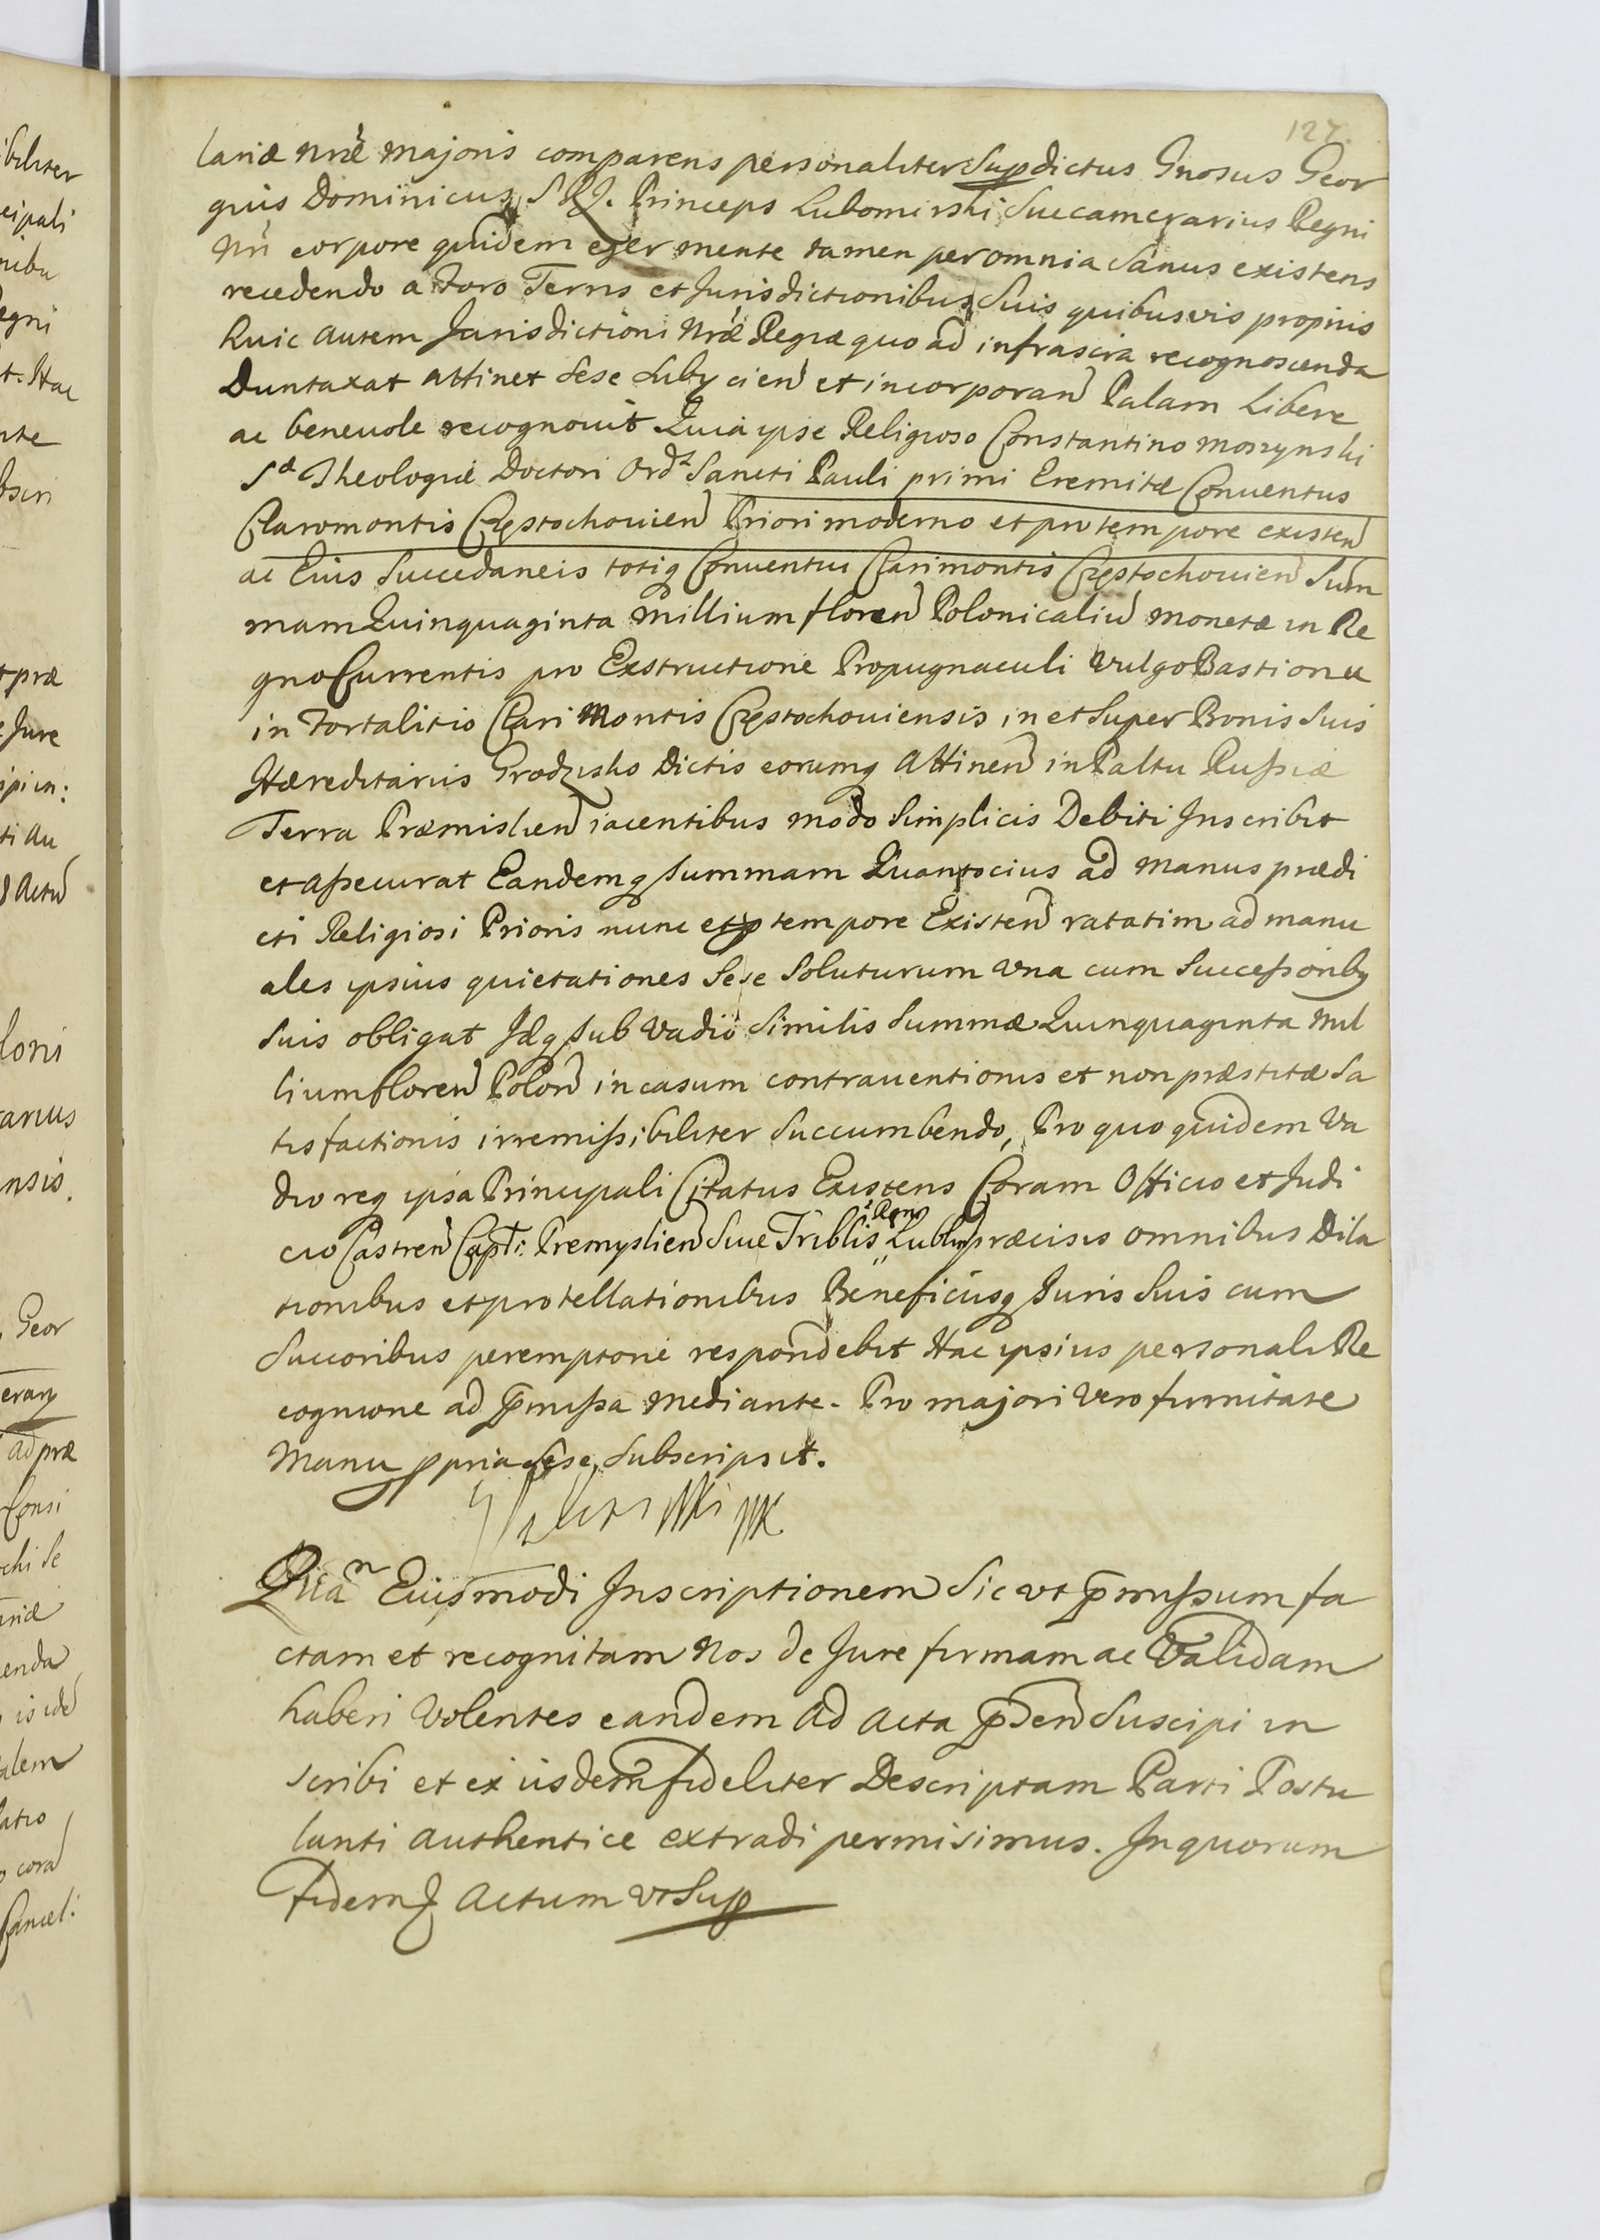 127.
lariæ nræ majoris comparens personaliter Supdictus Gnosus Geor
gius Dominicus S R J. Princeps Lubomirski Succamerarius Regni
nri corpore quidem eger mente tamen per omnia Sanus existens
recedendo a Foro Terris et Jurisdictionibus Suis quibusvis propriis
huic autem Jurisdictioni nræ Regiæ quo ad infrascra recognoscenda
Duntaxat attinet Sese Subycien et incorporan Palam Libere
ac beneuole recognouit Quia ipse Religioso Constantino Moszynski
Sæ Theologiæ Doctori Ord Sancti Pauli primi Eremitæ Conuentus
Claromontis Częstochouien Priori moderno et pro tempore existen
ac Eius Succedaneis totiq Conuentui Clarimontis Częstochouien Sum
mam Quinquaginta Millium floren Polonicaliu monetæ in Re
gno Currentis pro Exstructione Propugnaculi vulgo Bastionu
in Fortalitio Clari Montis Częstochouiensis in et Super Bonis Suis
Hæreditariis Grodzisko Dictis eorumq Attinen in Paltu Russiæ
Terra Præmislien iacentibus modo Simplicis Debiti Inscribit
et assecurat Eandemq summam Quantocius ad manus prædi
cti Religiosi Prioris nunc et p tempore Existen ratatim ad manu
ales ipsius quietationes Sese Soluturum una cum Successorib9
Suis obligat Idq sub Vadio Similis Summæ Quinquaginta Mil
lium floren Polon in casum contrauentionis et non præstitæ Sa
tisfactionis irremissibiliter Succumbendo, Pro quo quidem Va
dio req ipsa Principali Citatus Existens Coram Officio et Judi
cio Castren Capti: Premyslien Siue Triblis Regni Lublin præcisis omnibus Dila
tionibus et protellationibus Beneficiisq Iuris Suis cum
Succoribus peremptorie respondebit Hac ipsius personali Re
cognione ad pmissa mediante. Pro majori Vero firmitate
Manu ppria Sese Subscripsit.
Qua n Eiusmodi Inscriptionem Sic ut pmissum fa
ctam et recognitam Nos de Jure firmam ac Validam
haberi Volentes eandem ad acta pden Suscipi in
scribi et ex iisdem fideliter Descriptam Parti Postu
lanti authentice extradi permisimus. In quorum
fidem J Actum ut Sup